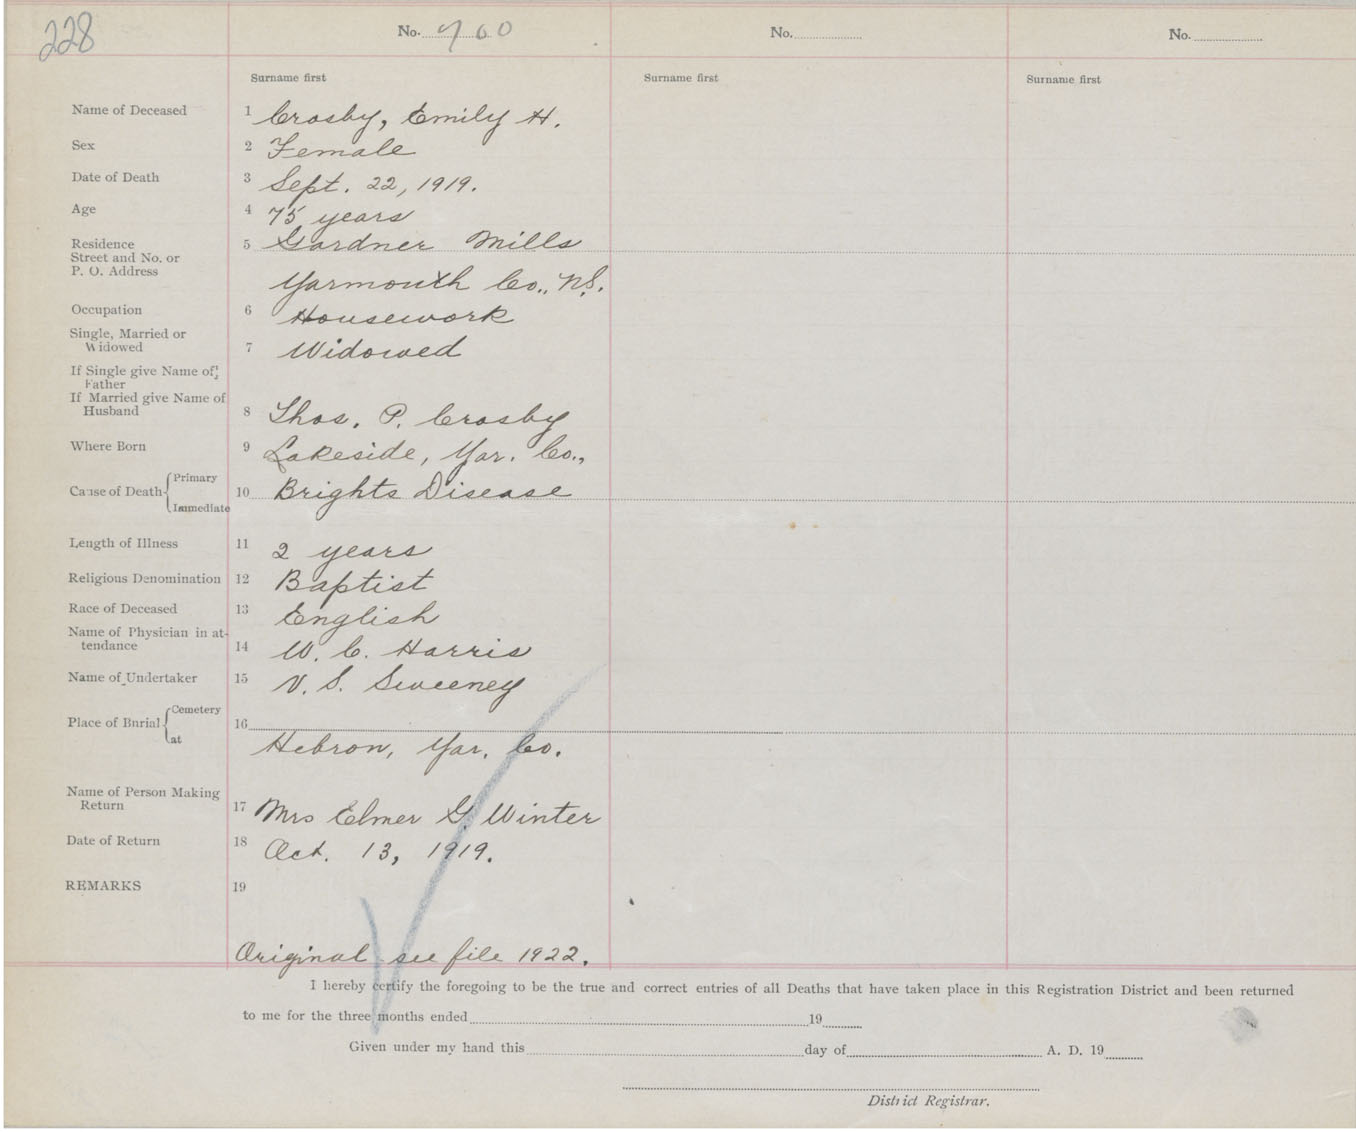 228
No. 760 No. No.
Surname first Surname first Surname first
Name of Deceased 1 Crosby, Emily H.
Sex 2 Female
Date of Death 3 Sept. 22, 1919.
Age 4 75 years
Residence 5 Gardner Mills
Street and No. or
P. O. Address Yarmouth Co., N.S.
Occupation 6 Housework
Single, Married or
Widowed 7 Widowed
If Single give Name of
Father
If Married give Name of
Husband 8 Thos. P. Crosby
Where Born 9 Lakeside, Yar. Co.,
Primary
Cause of Death 10 Brights Disease
Immediate
Length of Illness 11 2 years
Religious Denomination 12 Baptist
Race of Deceased 13 English
Name of Physician in at-
tendance 14 W. C. Harris
Name of Undertaker 15 V. S. Sweeney
Cemetery
Place of Burial 16
at Hebron, Yar. Co.
Name of Person Making
Return 17 Mrs Elmer G. Winter
Date of Return 18 Oct. 13, 1919.
REMARKS 19
Original see file 1922.
I hereby certify the foregoing to be the true and correct entries of all Deaths that have taken place in this Registration District and been returned
to me for the three months ended 19
Given under my hand this day of A. D. 19
District Registrar.